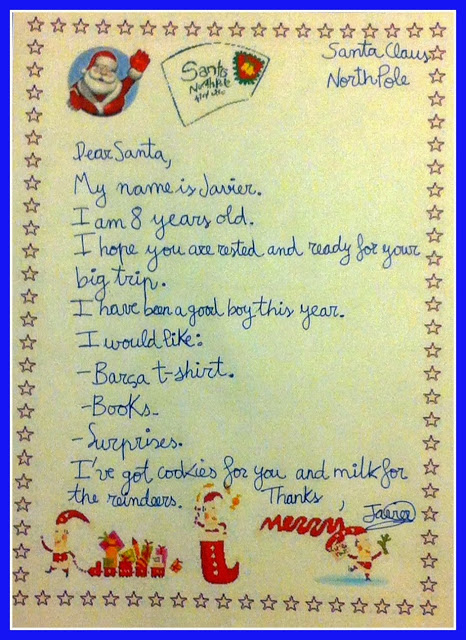 Santa Claus
North Pole
Santa
North Pole
Dear Santa,
My name is Javier.
I am 8 years old.
I hope you are rested and ready for your
big trip.
I have been a good boy this year.
I would like:
-Barça t-shirt.
-Books.
-Surprises.
I've got cookies for you and milk for
the reindeers. Thanks,
Merry
Javier